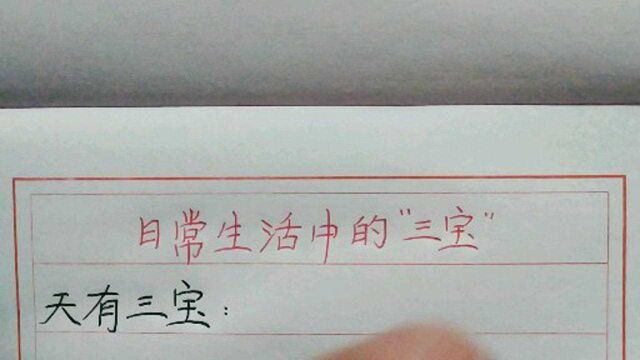 日常生活中的"三宝"
天有三宝：